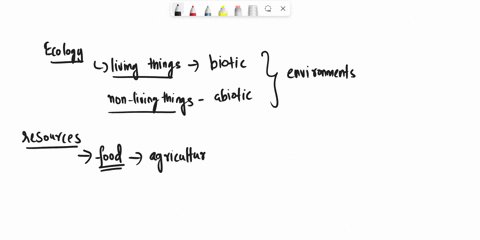 Ecology
living things → biotic
non-living things - abiotic
environments
resources
→ food → agricultur